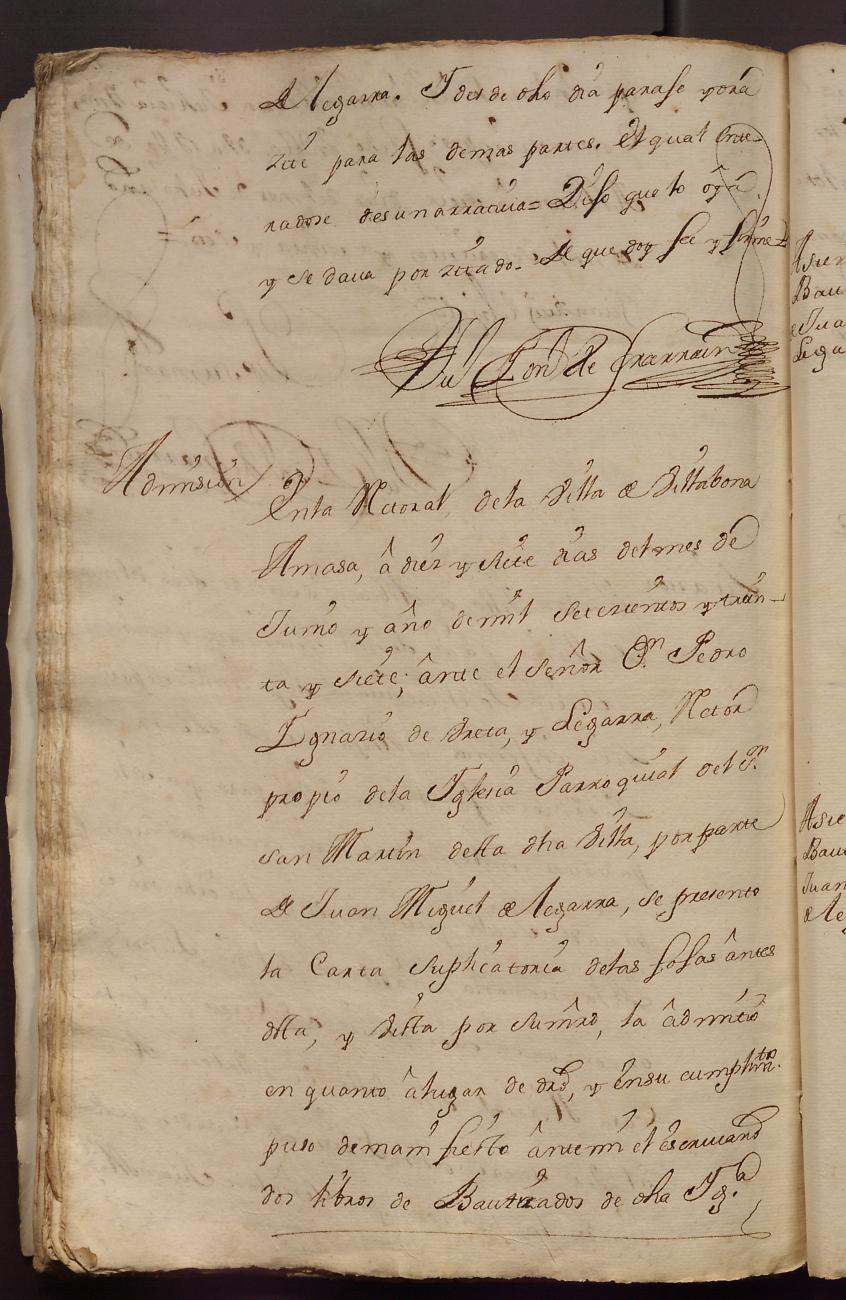 de Legarra. Y desde dho dia paraje y ora
zite para las demas partes. El qual ente-
radose desu narrativa = Dijo que lo oya
y se dava por zitado. De que doy fee y firme =
Admision
En la Retoral, dela Villa de Villabona
Amasa, â diez y siete dias del mes de
Junio y año de mil setezientos y trein-
ta y siete; ânte el señor Dn. Pedro
Ignazio de Ureta, y Legarra, Retor
propio dela Yglesia Parroquial del Sr.
san Martin desta dha Villa, por parte
de Juan Miguel de Legarra, se presento
la Carta suplicatoria delas fojas ântes
desta, y Vista por su mrd, la âdmitio
en quanto âlugar de dro, y ensu cumplimto.
puso demanifiesto ânte mi el escrivano
dos libros de Bautizados de dha Ygª.
Asien
Bau
de Jua
Lega
Asie
Bau
Juan
de Le